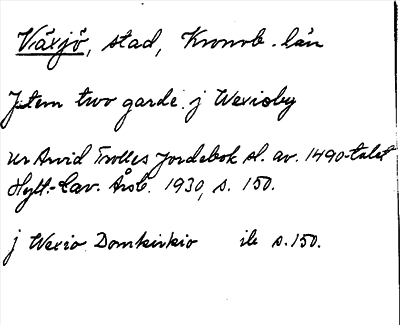 Växjö, stad, Kronob. län
Jtem two garde j Wexioby
Ur Arvid Trolles Jordebok sl. av. 1490-talet
Hylt.-Cav. Årsb. 1930, s. 150.
j Wexio Domkirkio ib s. 150.